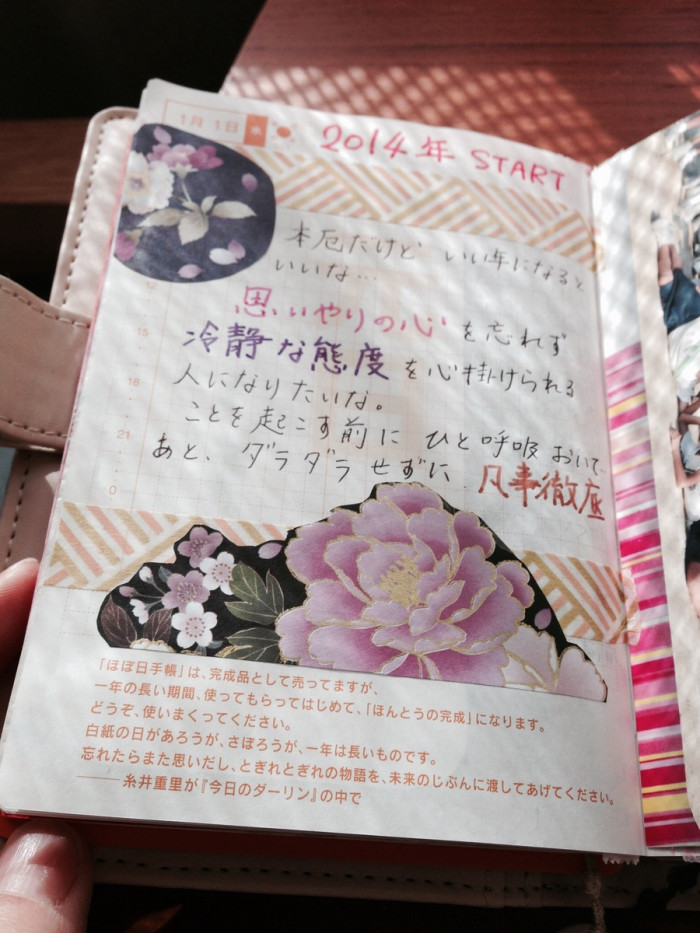 1月 1日 水
2014年 START
本厄だけど いい年になると
いいな…
思いやりの心 を忘れず
冷静な態度 を心掛けられる
人になりたいな。
ことを起こす前に ひと呼吸おいて…
あと、ダラダラせずに 凡事徹底
12
15
18
21
0
「ほぼ日手帳」は、完成品として売ってますが、
一年の長い期間、使ってもらってはじめて、「ほんとうの完成」になります。
どうぞ、使いまくってください。
白紙の日があろうが、さぼろうが、一年は長いものです。
忘れたらまた思いだし、とぎれとぎれの物語を、未来のじぶんに渡してあげてください。
――糸井重里が『今日のダーリン』の中で